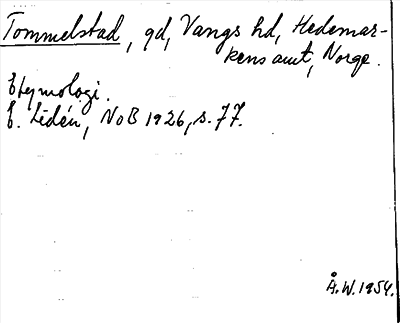 Tommelstad, gd, Vangs hd, Hedemar-
kens amt, Norge.
Etymologi.
E. Lidén, NoB 1926, s. 77.
Å.W. 1954.